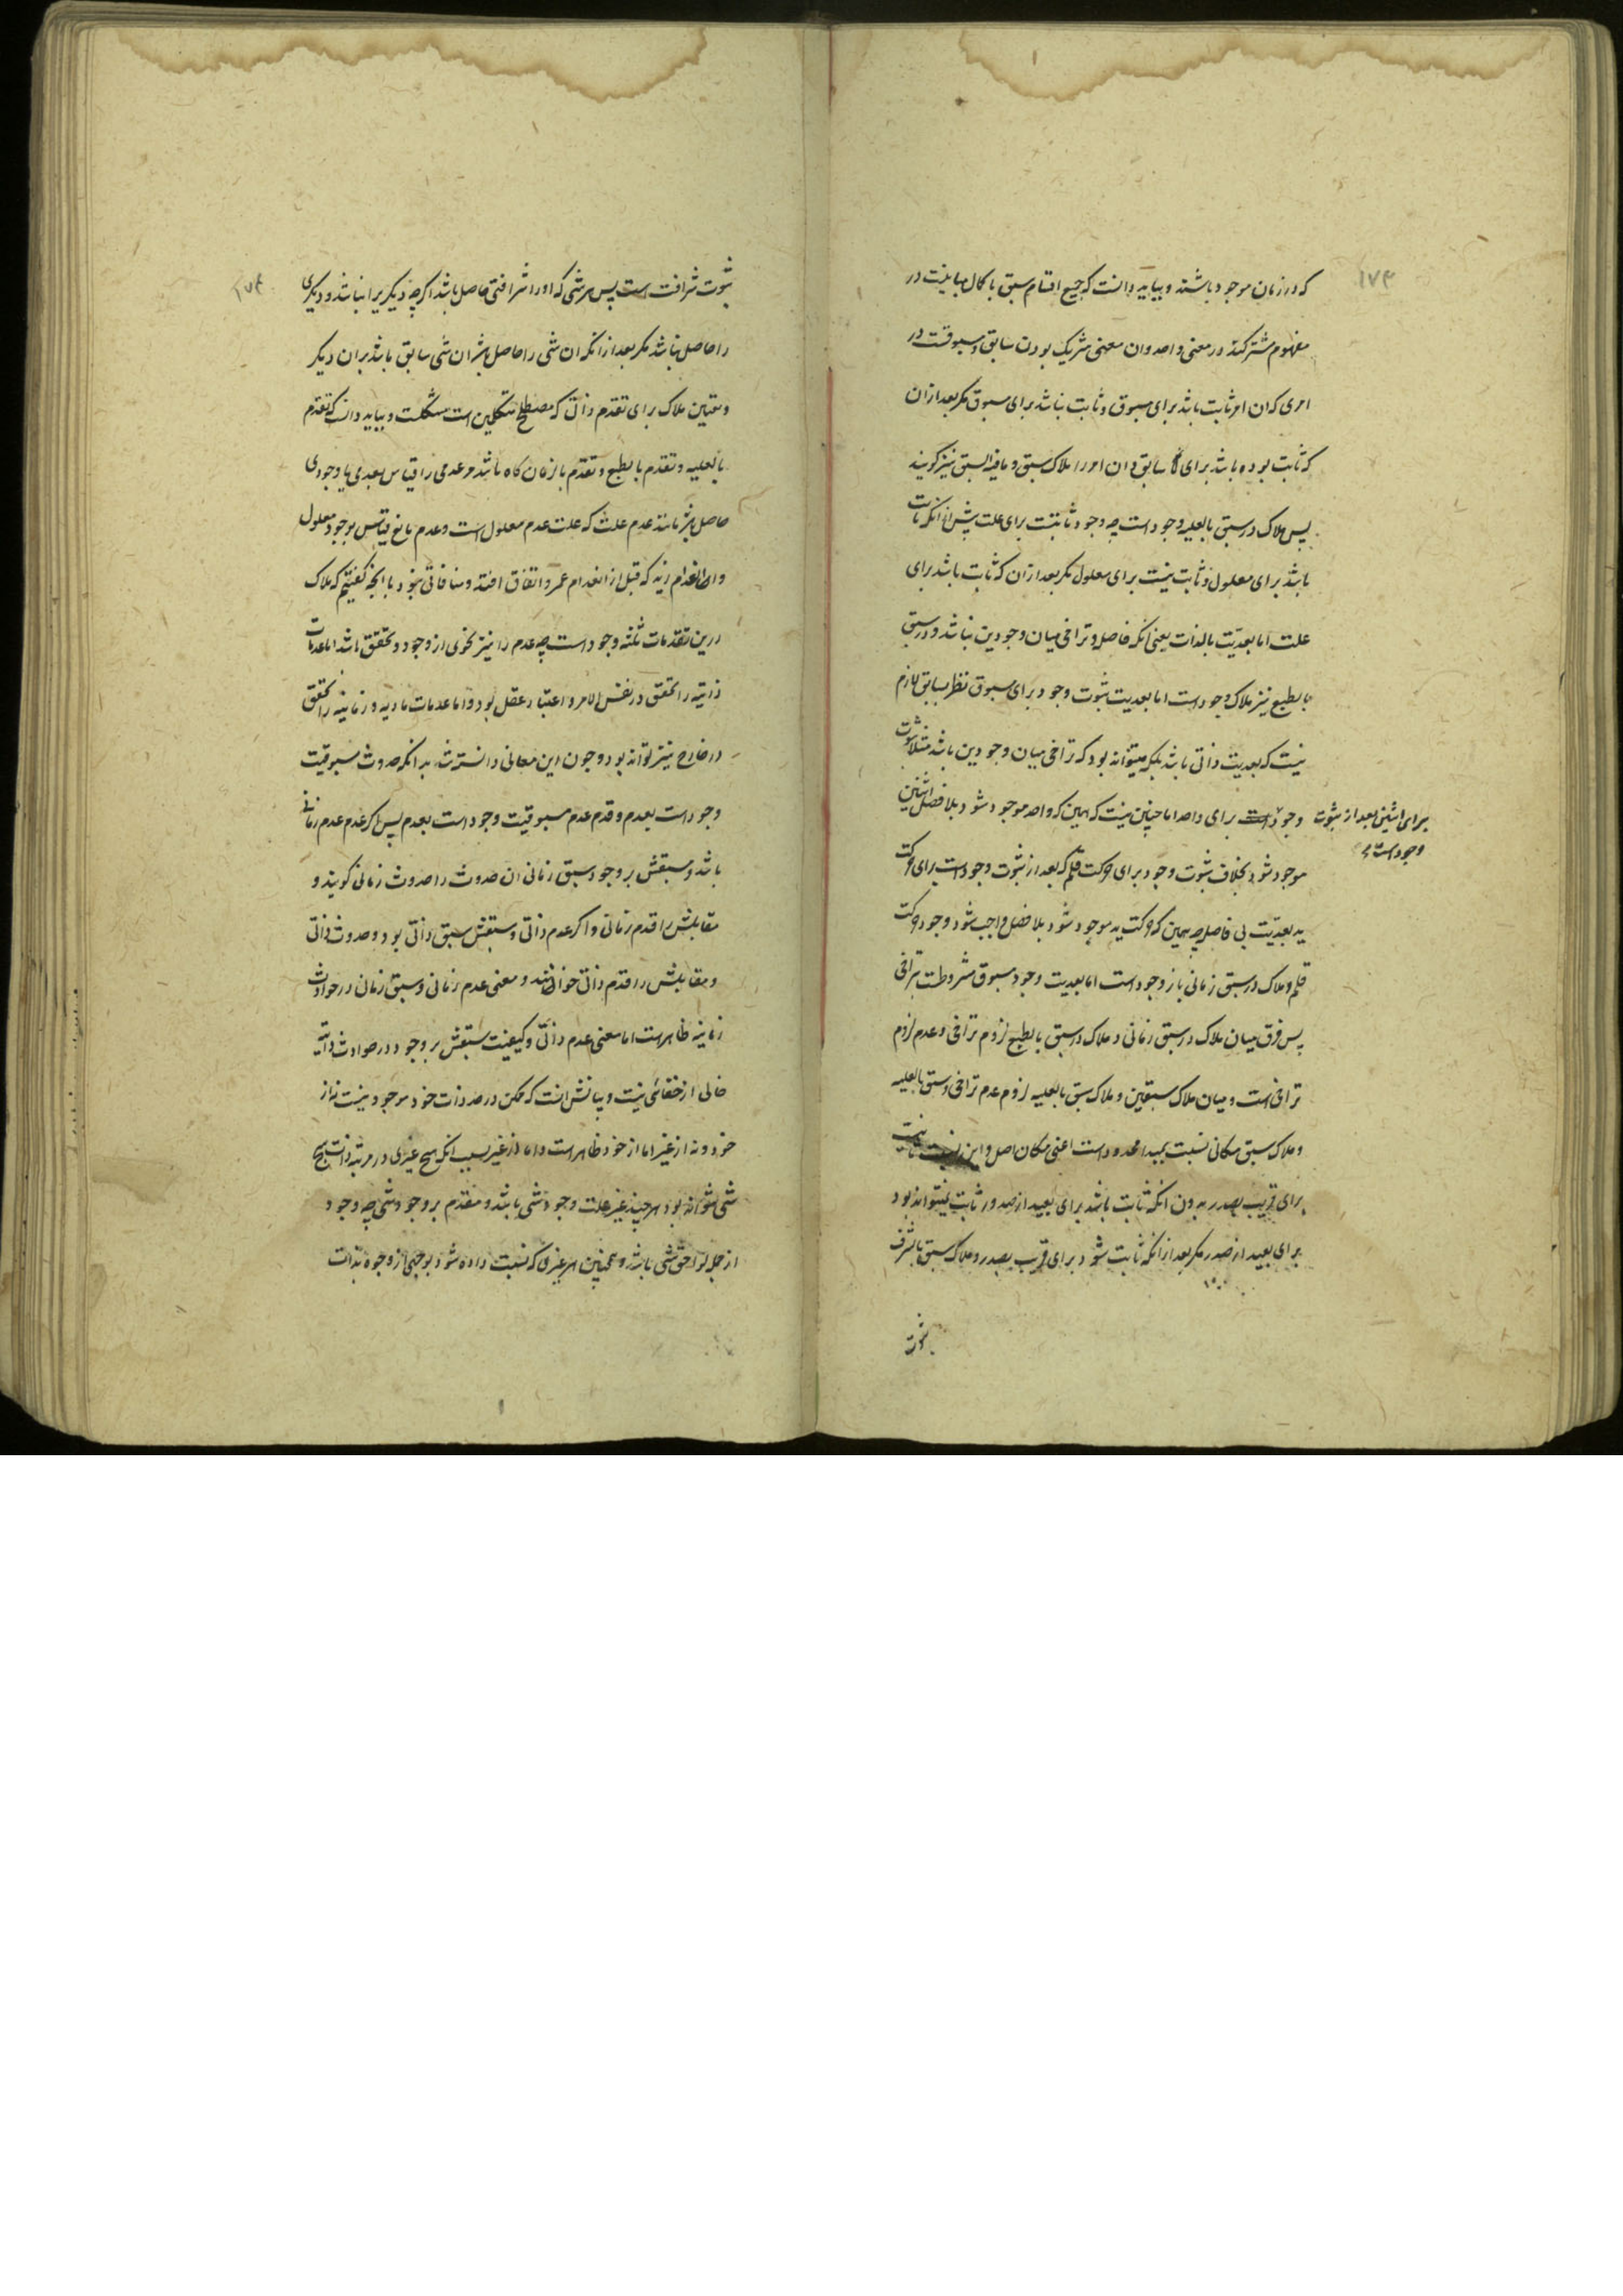 ۱۷۳
که در زمان موجود باشند و بباید دانست که جمیع اقسام سبق با کمال مباینت در
مفهوم مشترکند در معنی واحد و ان معنی شریک بودن سابق و مسبوقست در
امری که ان امر ثابت باشد برای مسبوق و ثابت نباشد برای مسبوق مکر بعد از ان
که ثابت بوده باشد برای سابق و ان امر را ملاک سبق و ما فیه السبق نیز کویند
پس ملاک در سبق بالعلیه وجود است چه وجود ثابتست برای علت پیش از انکه ثابت
باشد برای معلول و ثابت نیست برای معلول مکر بعد از ان که ثابت باشد برای
علت اما بعدیّت بالذات یعنی انکه فاصله و تراخی میان وجودین نباشد و در سبق
بالطبع نیز ملاک وجود است اما بعدیت ثبوت وجود برای مسبوق نظر بسابق لازم
نیست که بعدیت ذاتی باشد بلکه میتواند بود که تراخی میان وجودین باشد مثلا ثبوت
وجود برای واحد اما چنین نیست که همین که واحد موجود شود بلا فصل اثنین
برای اثنین بعد از ثبوت
وجود است
موجود شود بخلاف ثبوت وجود برای حرکت قلم که بعد از ثبوت وجود است برای حرکت
ید بعدیّت بی فاصله چه همین که حرکت ید موجود شود بلا فصل واجب شود وجود حرکت
قلم و ملاک در سبق زمانی باز وجود است اما بعدیت وجود مسبوق مشروطست بتراخی
پس فرق میان ملاک در سبق زمانی و ملاک در سبق بالطبع لزوم تراخی و عدم لزوم
تراخی است و میان ملاک سبقین و ملاک سبق بالعلیه لزوم عدم تراخی در سبق بالعلیه
و ملاک سبق مکانی نسبت بمبدا محدود است اعنی مکان اصل و این نسبت
برای قریب بصدر بدون انکه ثابت باشد برای بعید از صدر و ثابت نمیتواند بود
برای بعید از صدر مکر بعد از انکه ثابت شود برای قریب بصدر و ملاک سبق بالشرف
ثبوت
ثبوت شرافت است پس هر شی که او را شرافتی حاصل باشد اکرچه دیکریرا نباشد و دیکری
را حاصل نباشد مکر بعد از انکه ان شی را حاصل باشد ان شی سابق باشد بر ان دیکر
و تعیین ملاک برای تقدم ذاتی که مصطلح متکلمین است مشکلست و بباید دانست که تقدم
بالعلیه و تقدم بالطبع و تقدّم بالزمان کاه باشد مر عدمی را قیاس بعدمی یا وجودی
حاصل باشد مانند عدم علت که علت عدم معلول است و عدم مانع قیاس بوجود معلول
و انعدام زید که قبل از انعدام عمرو اتفاق افتد و منافاتی نبود با انچه کفتیم که ملاک
درین تقدمات ثلثه وجود است چه عدم را نیز نحوی از وجود و تحقق باشد اما عدمات
ذاتیه را تحقق در نفس الامر و اعتبار عقل بود و اما عدمات مادیه و زمانیه را تحقق
در خارج نیز تواند بود و چون این معانی دانسته شد بدانکه حدوث مسبوقیت
وجود است بعدم و قدم عدم مسبوقیت وجود است بعدم پس اکر عدم عدم زمانی
باشد و سبقش بر وجود سبق زمانی ان حدوث را حدوث زمانی کویند و
مقابلش را قدم زمانی و اکر عدم ذاتی و سبقش سبق ذاتی بود و حدوث ذاتی
و مقابلش را قدم ذاتی خوانند و معنی عدم زمانی و سبق زمان در حوادث
زمانیه ظاهر است اما معنی عدم ذاتی و کیفیت سبقش بر وجود در حوادث ذاتیه
خالی از خفائی نیست و بیانش انست که ممکن در حد ذات خود موجود نیست نه از
خود و نه از غیر اما از خود ظاهر است و اما از غیر بسبب انکه هیچ غیری در مرتبه ذات هیچ
شی نتواند بود هر چند غیر علت وجود شی باشد و مقدم بر وجود شی چه وجود
از جمله لواحق شی باشد و همچنین هر غیری که نسبت داده شود بوجهی از وجوه بذات